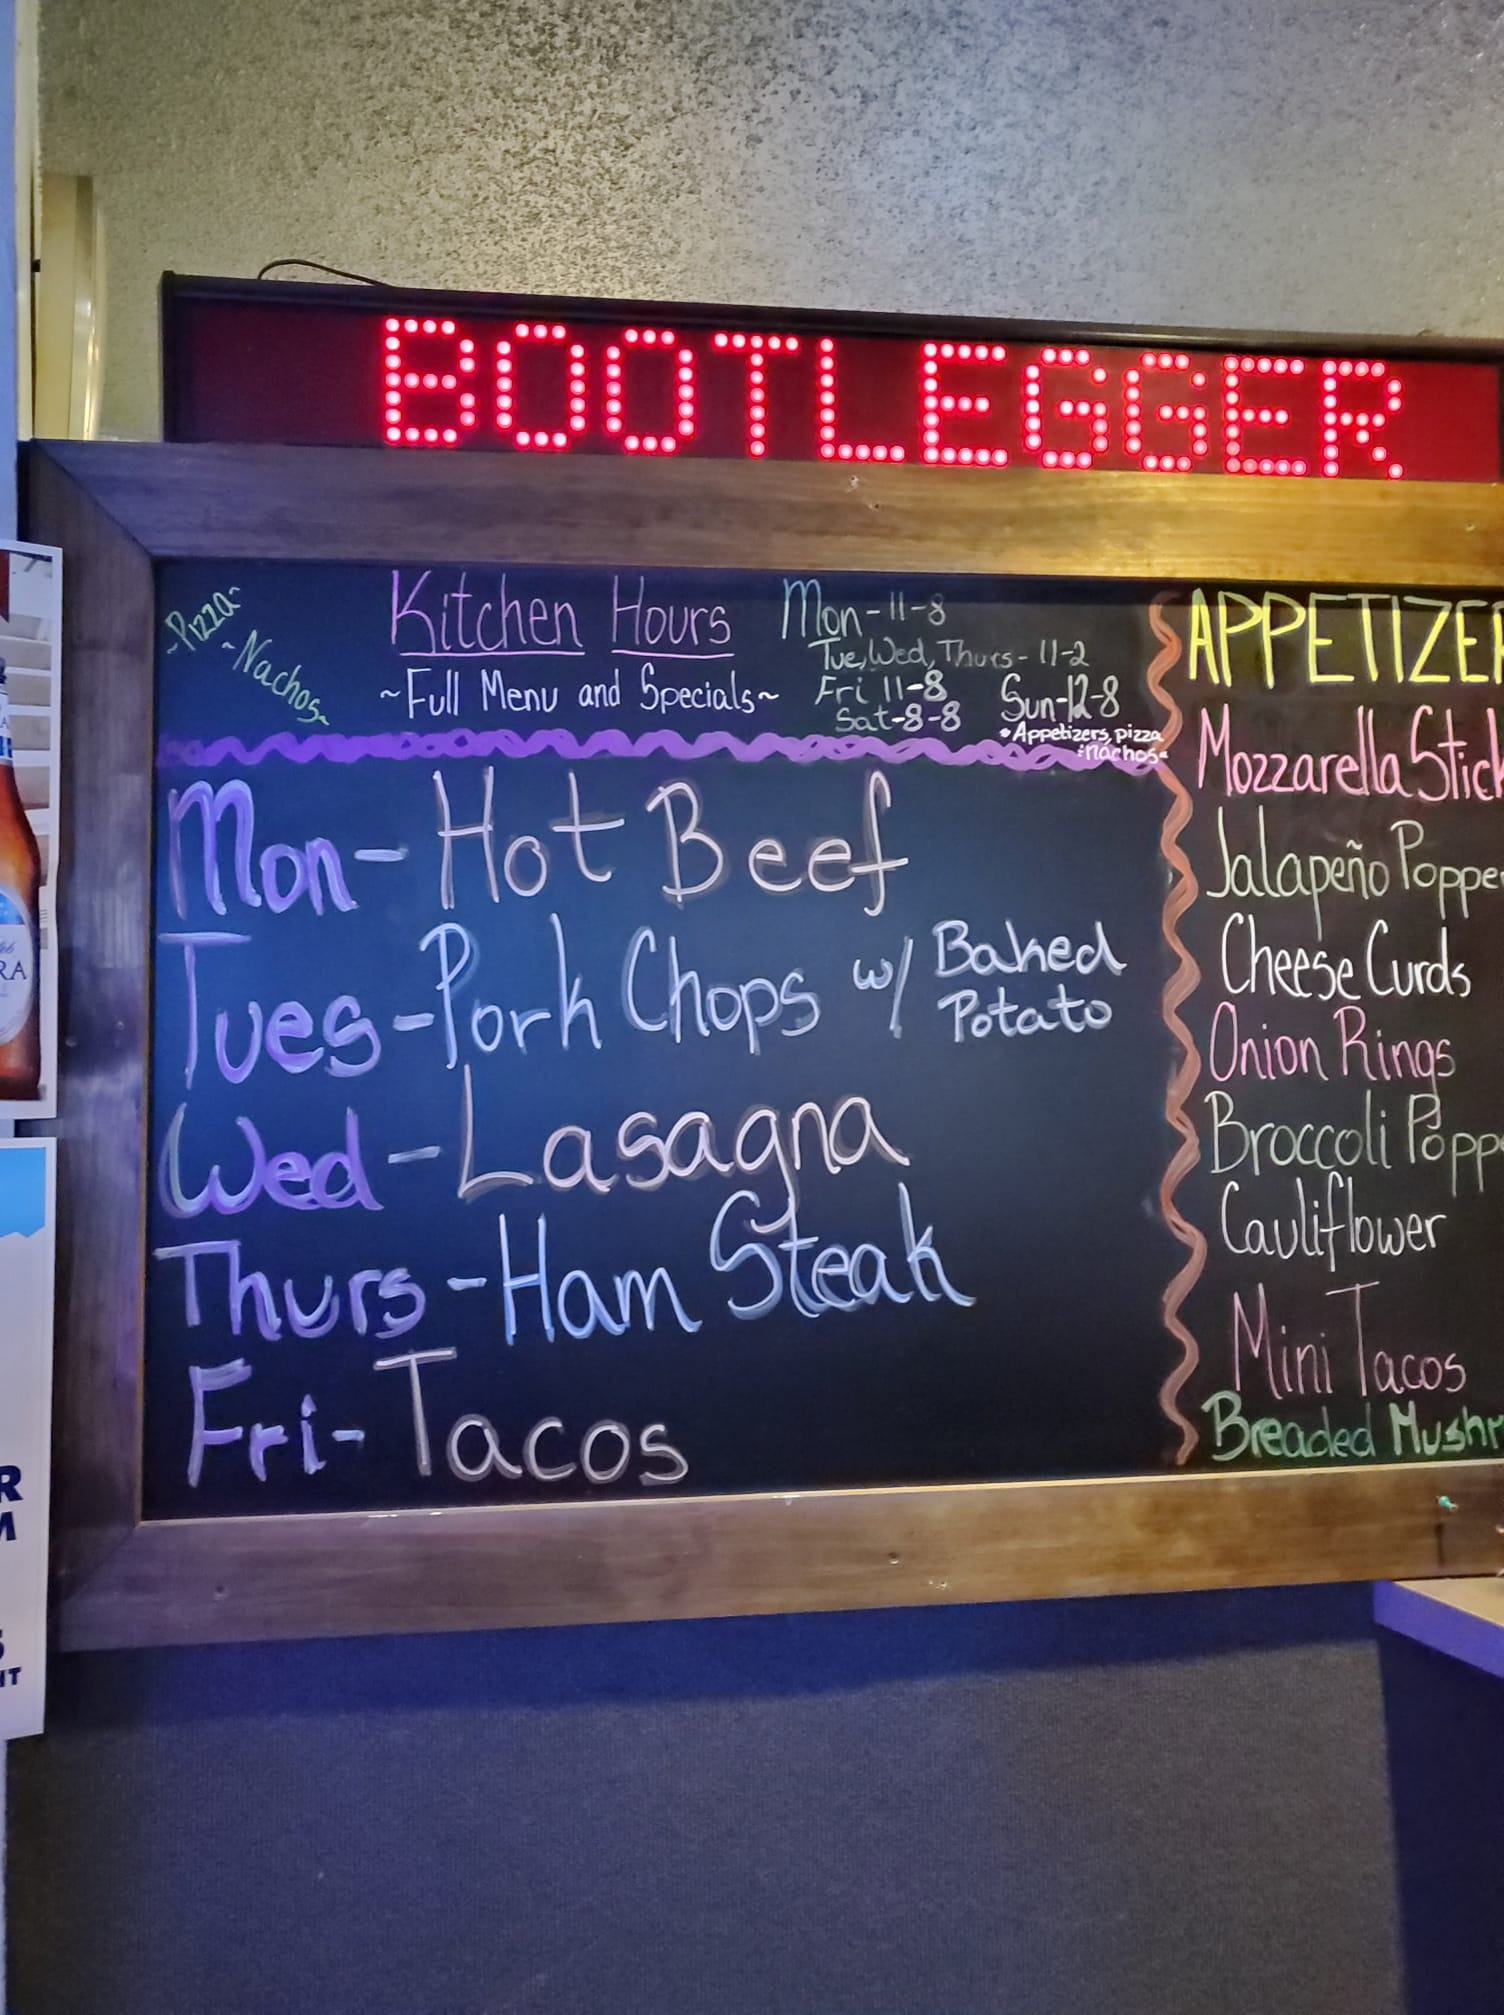 BOOTLEGGER
~Pizza~
~Nachos~
Kitchen Hours
~Full Menu and Specials~
Mon-11-8
Tue, Wed, Thurs-11-2
Fri 11-8
Sat-8-8
Sun-12-8
*Appetizers, pizza
nachos*
Mon-Hot Beef
Tues-Pork Chops w/ Baked
Potato
Wed-Lasagna
Thurs-Ham Steak
Fri-Tacos
APPETIZER
Mozzarella Stick
Jalapeño Popper
Cheese Curds
Onion Rings
Broccoli Popp
Cauliflower
Mini Tacos
Breaded Mushr
RA
R
M